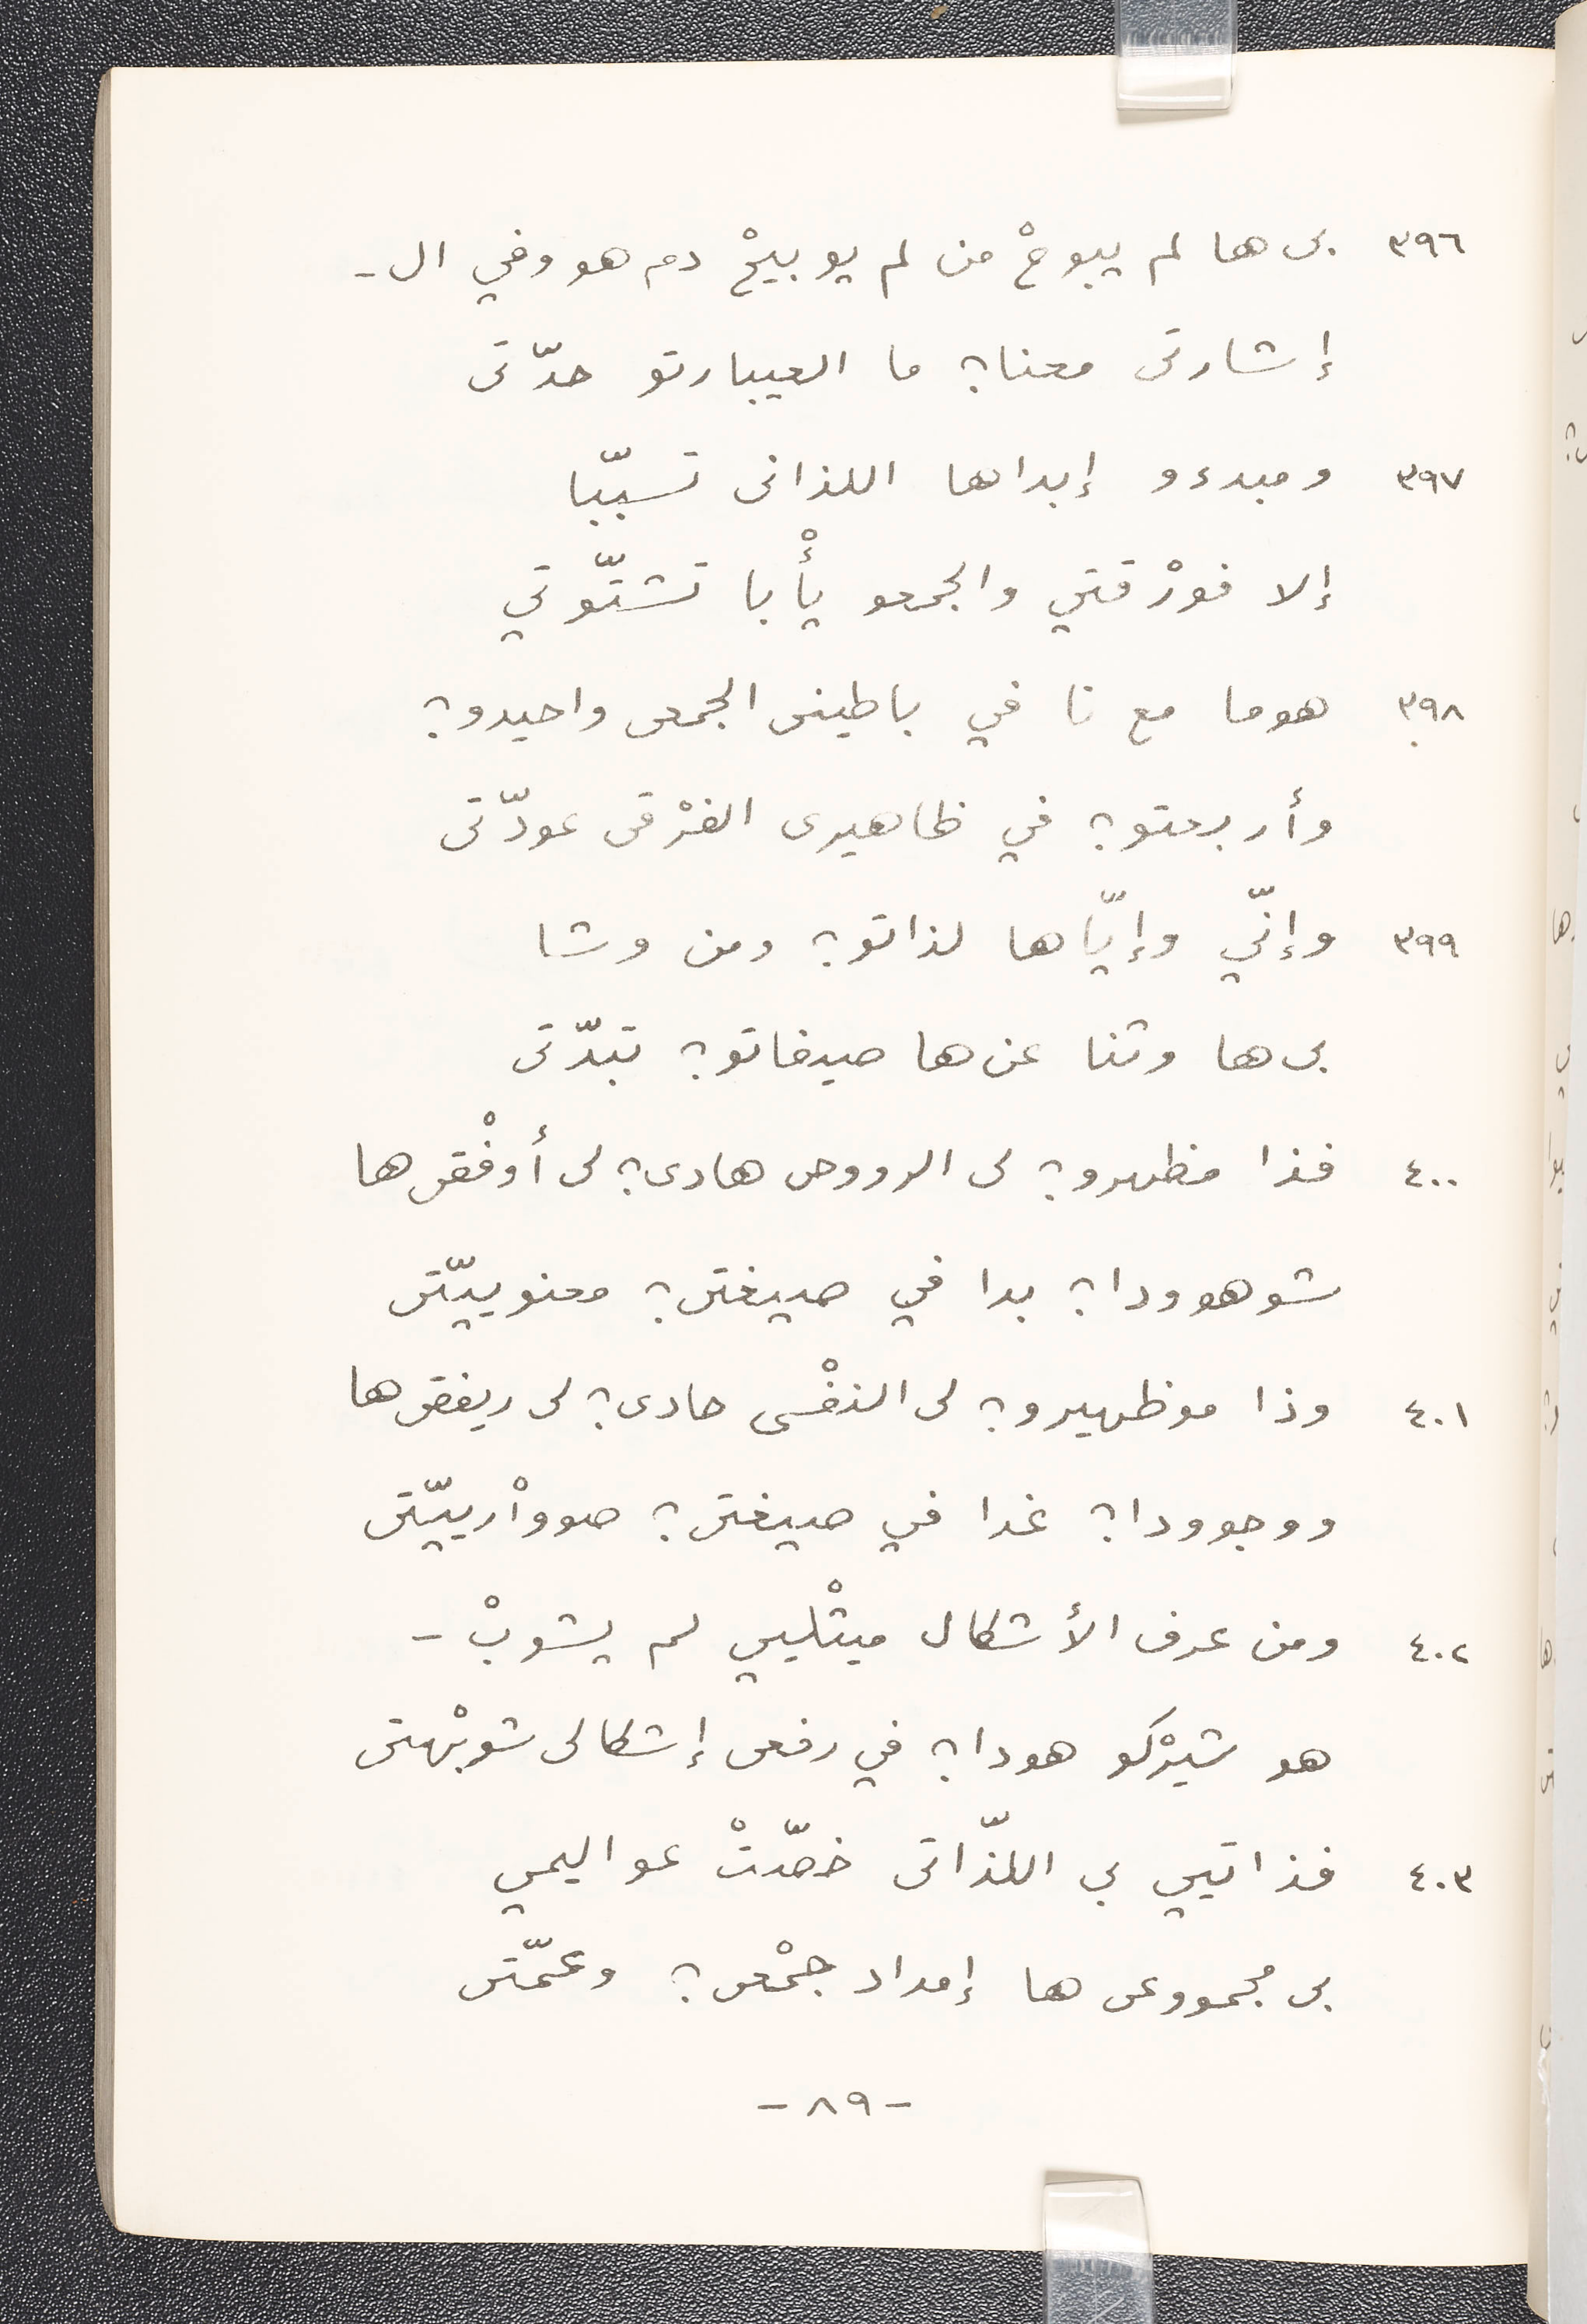 ٣٩٦ بى ها لم يبوحْ من لم يوبيحْ دم هو وفي ال -
إشارتى معنا؟ ما العيبارتو حدّتى
٣٩٧ ومبدءو إبداها اللذانى تسبّبا
إلا فورْقتي والجمعو يأْبا تشتّوتي
٣٩٨ هوما مع نا في باطينى الجمعى واحيدو؟
وأربعتو؟ في ظاهيرى الفرْقى عودّتى
٣٩٩ وإنّي وإيّاها لذاتو؟ ومن وشا
بى ها وثنا عن ها صيفاتو؟ تبدّتى
٤٠٠ فذا مظهرو؟ لى الرووحى هادى؟ لى أوفْقى ها
شوهوودا؟ بدا في صييغتى؟ معنوييّتى
٤٠١ وذا موظهيرو؟ لى النفْسى حادى؟ لى ريفقى ها
ووجوودا؟ غدا في صييغتى؟ صووْارييّتى
٤٠٢ ومن عرف الأشكال ميثْليي لم يشوبْ -
هو شيرْكو هودا؟ في رفعى إشكالى شوبْهتى
٤٠٣ فذاتيي بي اللذّاتى خصّتْ عواليمي
بى مجمووعى ها إمداد جمْعى؟ وعمّتى
- ٨٩ -